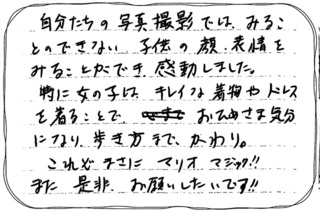 自分たちの写真撮影では、みるこ
とのできない 子供の顔、表情を
みることができ、感動しました。
特に女の子は、キレイな着物やドレス
を着ることで、 おひめさま気分
になり、歩き方まで、かわり。
これぞまさに マリオ マジック!!
また 是非、お願いしたいです!!